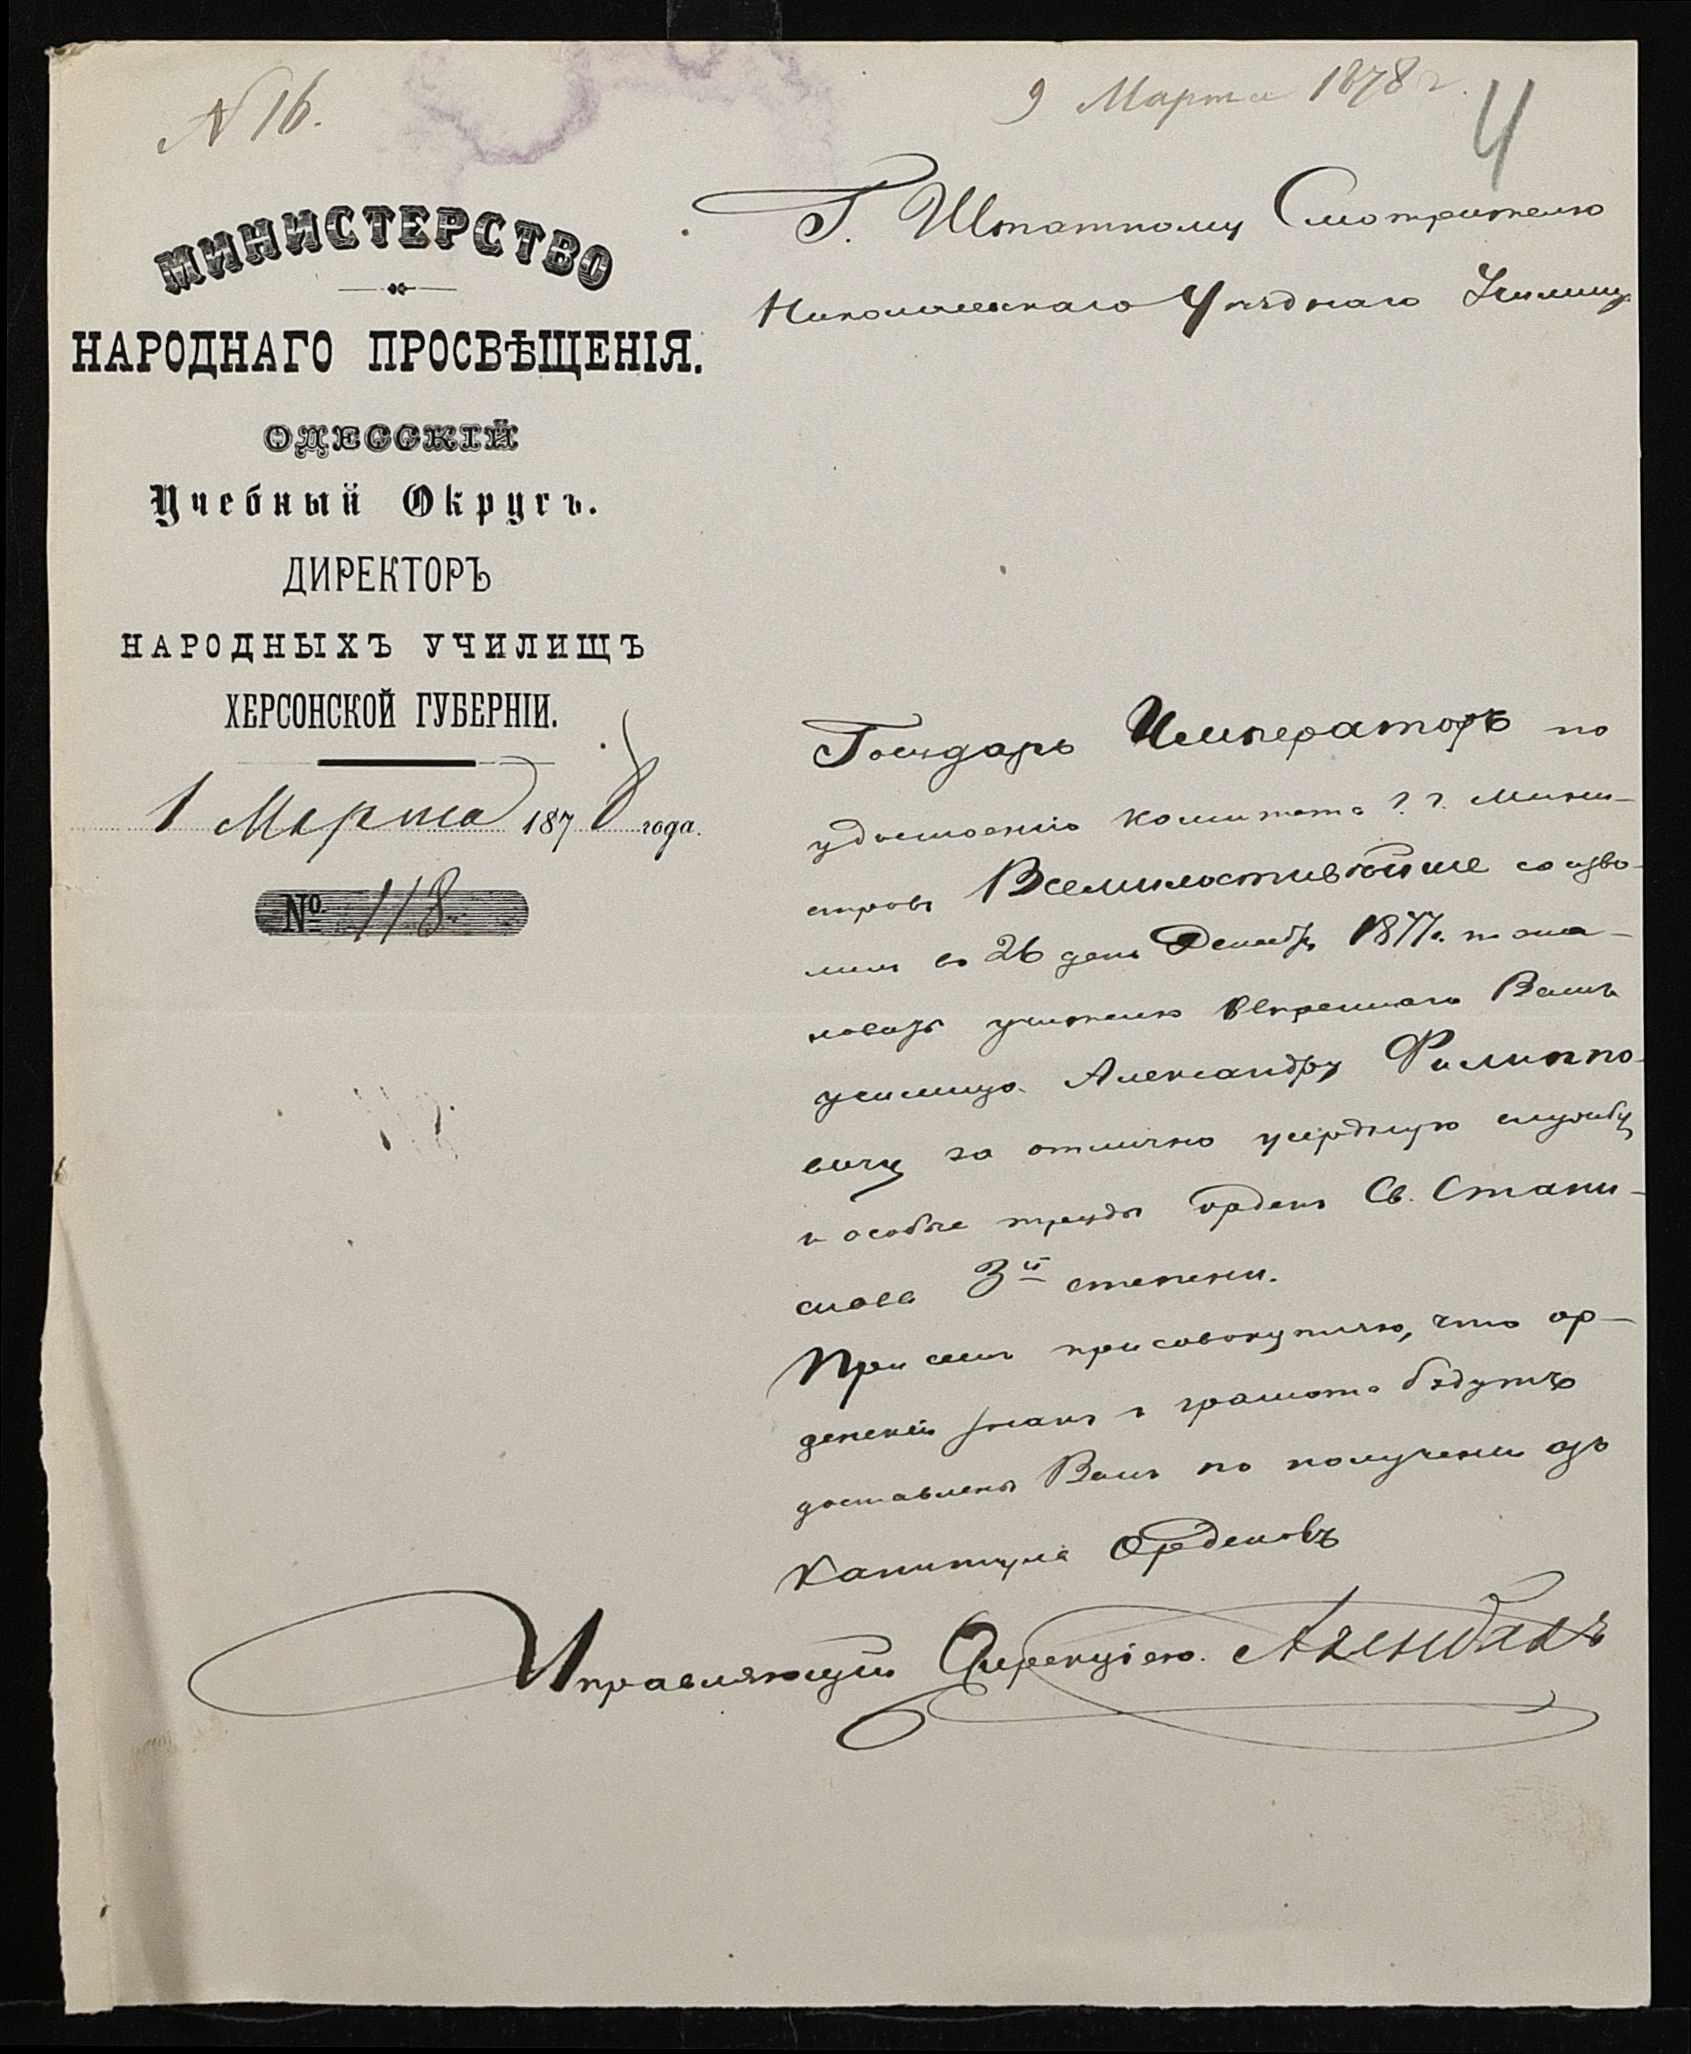 N 16.
9 Марта 1878 г.
4
МИНИСТЕРСТВО
НАРОДНАГО ПРОСВѢЩЕНІЯ.
ОДЕССКІЙ
Учебный Округъ.
ДИРЕКТОРЪ
НАРОДНЫХЪ УЧИЛИЩЪ
ХЕРСОНСКОЙ ГУБЕРНІИ.
1 Марта 1878 года.
№ 118
Г. Штатному Смотрителю
Николаевскаго Уѣзднаго Училищ
Государь Императоръ по
удостоенію комитета г. г. Мини-
стровъ Всемилостивѣйше соизво-
лилъ въ 26 день Декабр 1877 г. пожа-
ловать учителю ввѣреннаго Вамъ
училища Александру Филиппо-
вичу за отлично усердную службу
и особые труды орденъ Св. Стани-
слава 3й степени.
При семъ присовокупляю, что ор-
денскій знакъ и грамота будутъ
доставлены Вамъ по полученіи изъ
Капитула Орденовъ
Управляющій Дирекціею.